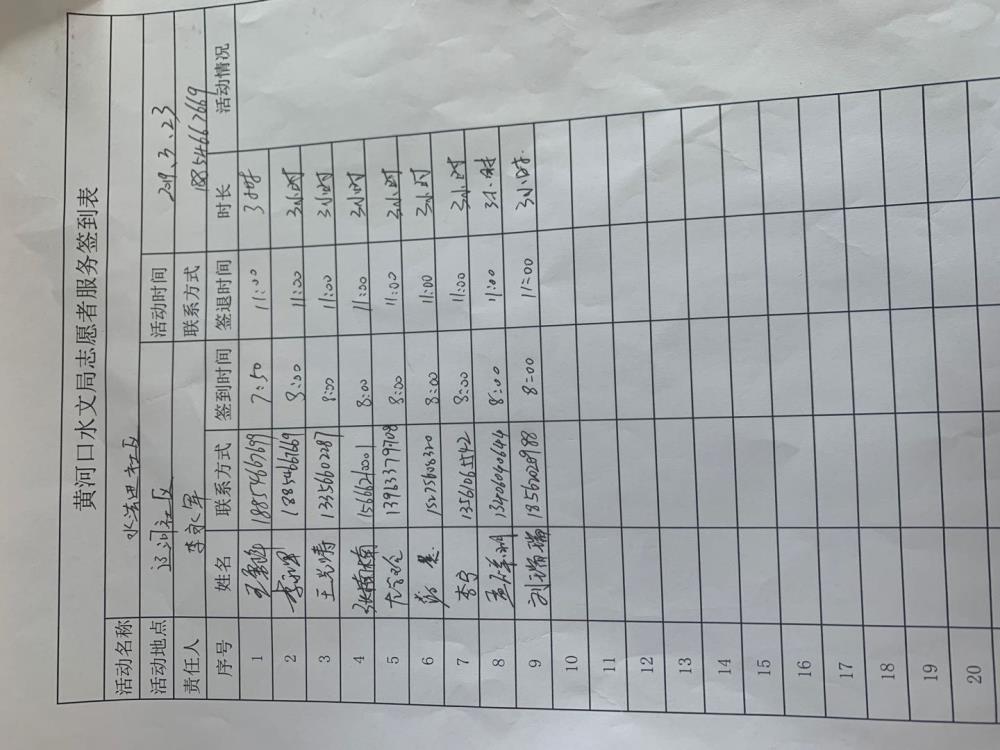 黄河口水文局志愿者服务签到表
活动名称 水法进社区
活动地点 辽河社区 活动时间 2019.3.23
责任人 李永军 联系方式 18854662669
序号 姓名 联系方式 签到时间 签退时间 时长 活动情况
1 7:50 11:00 3小时
2 李永军 8:00 11:00 3小时
3 王光涛 13356602287 8:00 11:00 3小时
4 张楠楠 8:00 11:00 3小时
5 13963379708 8:00 11:00 3小时
6 15275608320 8:00 11:00 3小时
7 李宁 13561065542 8:00 11:00 3小时
8 13406040644 8:00 11:00 3小时
9 刘瑞瑞 18562028988 8:00 11:00 3小时.
10
11
12
13
14
15
16
17
18
19
20